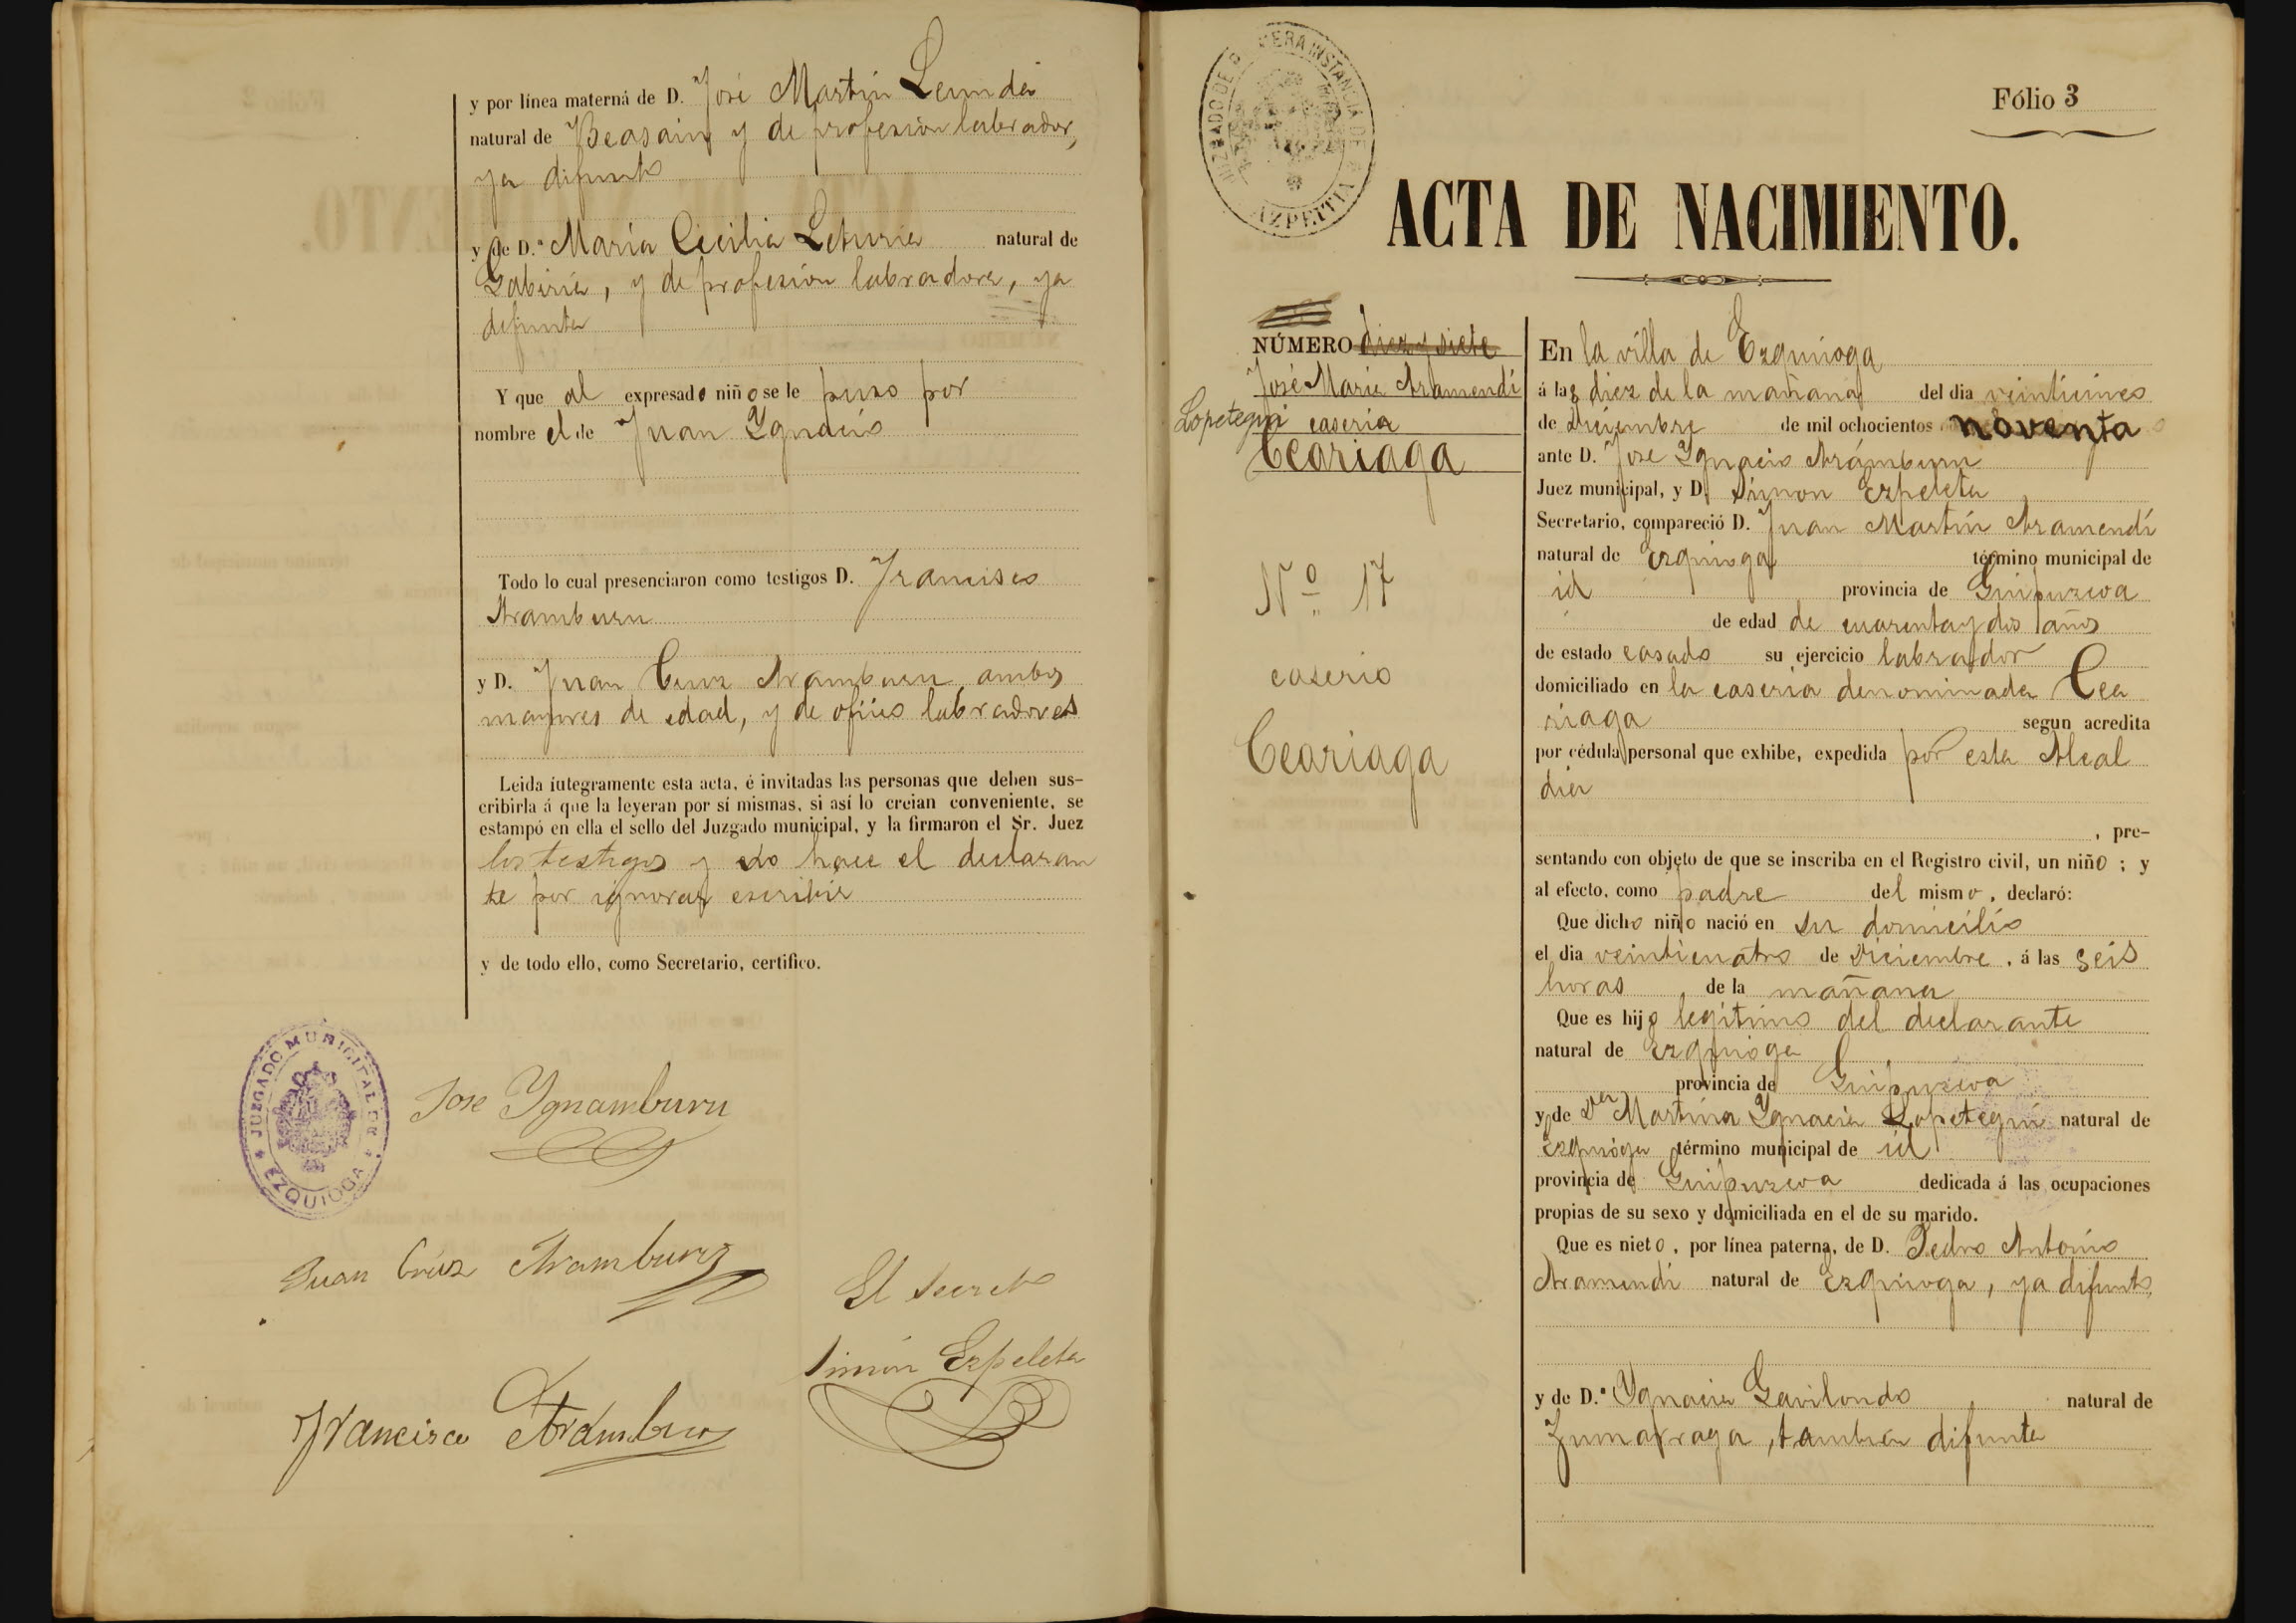 y por línea materna de D. José Martín Lemda
natural de Beasain y de profesion labrador,
ya difunto
y de D.ª María Cecilia Leturia natural de
Gabiria, y de profesion labradora, ya
difunta
Y que al expresado niño se le puso por
nombre el de Juan Ygnacio
Todo lo cual presenciaron como testigos D. Francisco
Aramburu
y D. Juan Cruz Aramburu, ambos
mayores de edad, y de oficio labradores
Leida íntegramente esta acta, é invitadas las personas que deben sus-
cribirla á que la leyeran por sí mismas, si así lo creian conveniente, se
estampó en ella el sello del Juzgado municipal, y la firmaron el Sr. Juez
los testigos y no hace el declaran
te por ignorar escribir
y de todo ello, como Secretario, certifico.
JUZGADO MUNICIPAL DE
EZQUIOGA
Jose Ygnamburu
Juan Crúz Aramburu
El Secret°
Simón Ezpeleta
Francisco Aramburu
JUZGADO DE PRIMERA INSTANCIA DE
AZPEITIA
Fólio 3
ACTA DE NACIMIENTO.
NÚMERO diez y siete
José Maria Aramendi
Lopetegui caseria
Ceariaga
Nº 17
caserio
Ceariaga
En la villa de Ezquioga
á las diez de la mañana del dia veinticinco
de Diciembre de mil ochocientos noventa
ante D. José Ygnacio Arámburu
Juez municipal, y D. Simon Ezpeleta
Secretario, compareció D. Juan Martín Aramendi
natural de Ezquioga término municipal de
id provincia de Guipuzcoa
de edad de cuarenta y dos años
de estado casado su ejercicio labrador
domiciliado en la caseria denominada Cea
riaga segun acredita
por cédula personal que exhibe, expedida por esta Alcal
dia
, pre-
sentando con objeto de que se inscriba en el Registro civil, un niño ; y
al efecto, como padre del mismo, declaró:
Que dicho niño nació en su domicilio
el dia veinticuatro de Diciembre, á las seis
horas de la mañana
Que es hijo legítimo del declarante
natural de Ezquioga
provincia de Guipuzcoa
y de Dª Martina Ygnacia Lopetegui natural de
Ezquioga término municipal de id
provincia de Guipuzcoa dedicada á las ocupaciones
propias de su sexo y domiciliada en el de su marido.
Que es nieto, por línea paterna, de D. Pedro Antonio
Aramendi natural de Ezquioga, ya difunto,
y de D.ª Ygnacia Gavilondo natural de
Zumarraga, tambien difunta